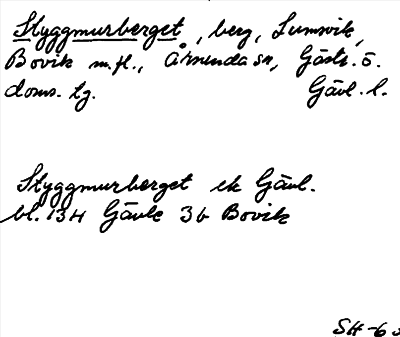 Styggmurberget, berg, Sumvik,
Bovik m.fl., Årsunda sn, Gästr. ö.
doms. tg. Gävl. l.
Styggmurberget ek Gävl.
bl. 134 Gävle 3b Bovik
SH-6